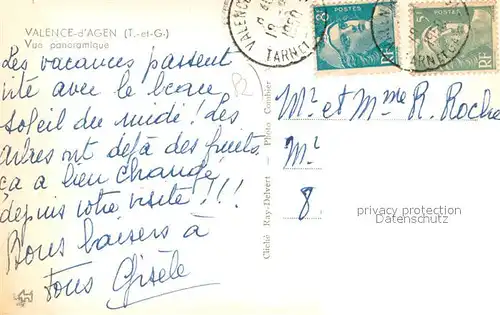 VALENCE-d'AGEN (T.-et-G.)
Vue panoramique
Les vacances passent
vite avec le beau
soleil du midi! Les
arbres ont déjà des fruits,
ça a bien changé
depuis votre visite!!!
Bons baisers à
Tous Gisèle
Cliché Ray-Delvert - Photo Combier
VALENCE
18
1950
TARN ET
8F
RF
5F
RF
Mr et Mme R. Roche
Mr
8
privacy protection
Datenschutz